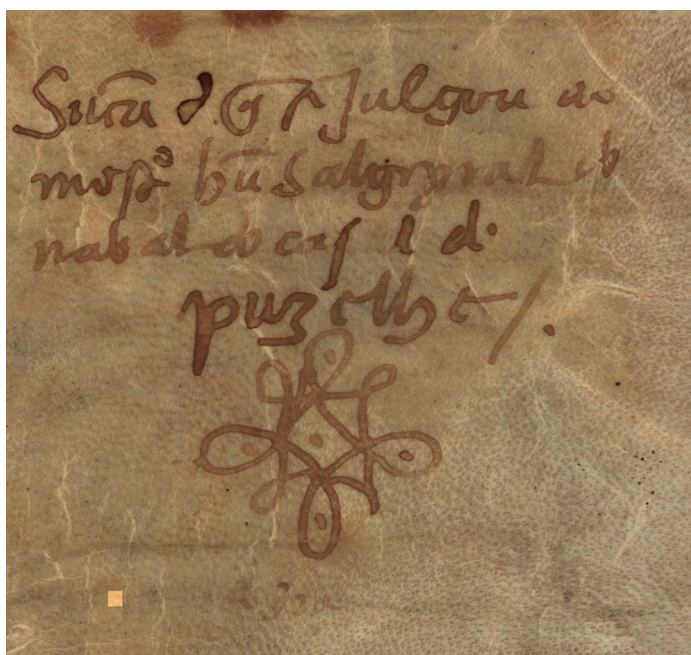 Sñça d. q̃ Julgou ao
mostº hũ Salgeyral
nabal do casal d.
puzelhe/.